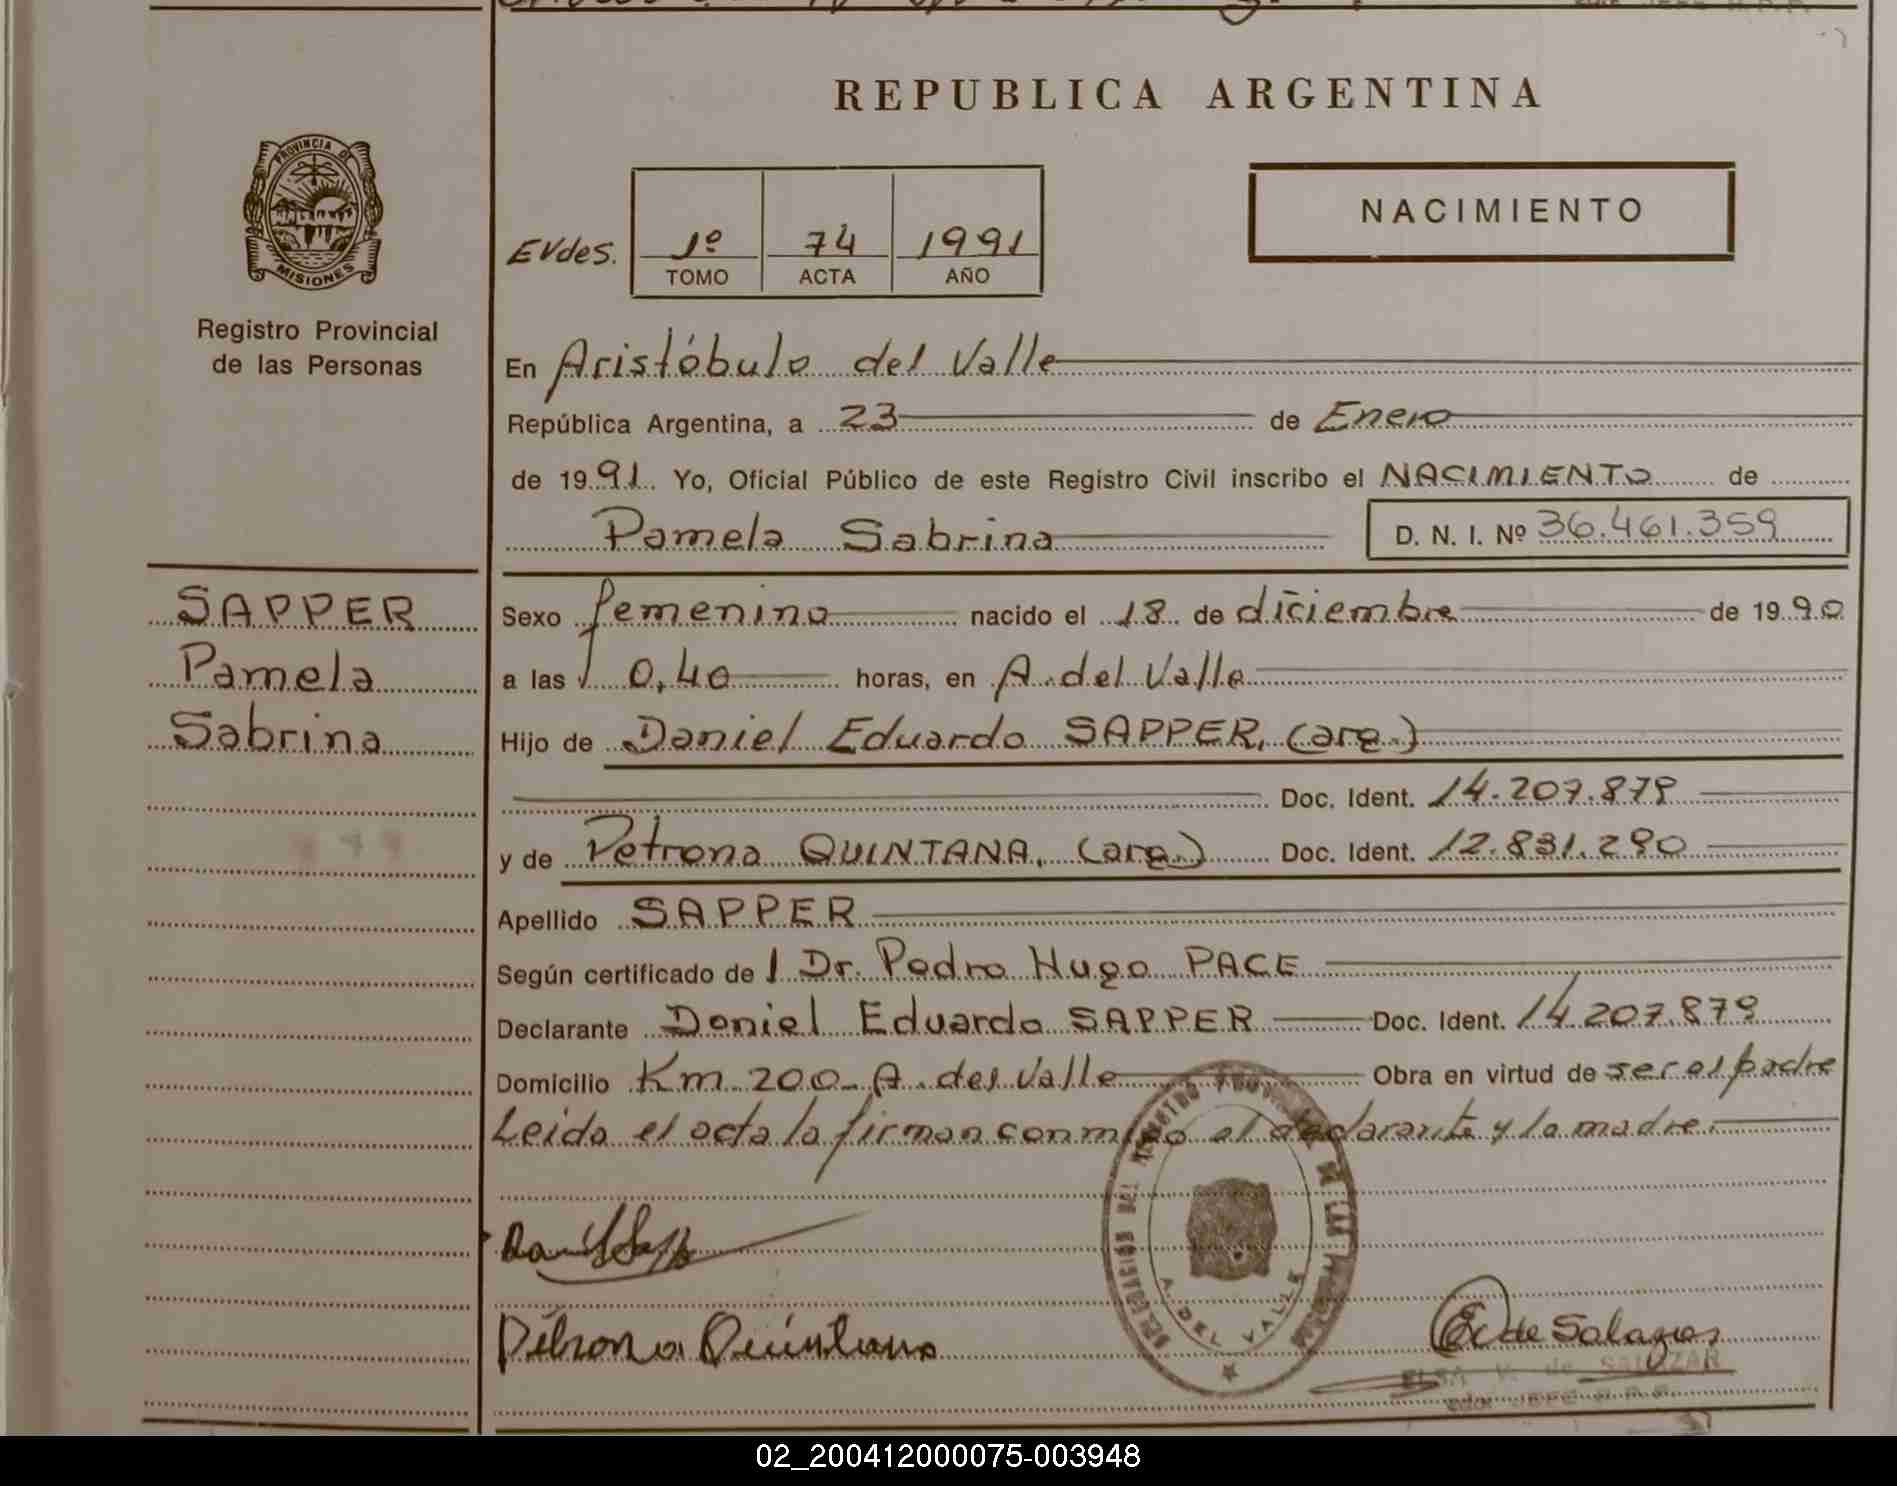 REPUBLICA ARGENTINA
PROVINCIA DE
MISIONES
Registro Provincial
de las Personas
NACIMIENTO
EVdes. 1º 74 1991
TOMO ACTA AÑO
En Aristóbulo del Valle
República Argentina, a 23 de Enero
de 1991 Yo, Oficial Público de este Registro Civil inscribo el NACIMIENTO de
Pamela Sabrina D. N. I. Nº 36.461.359
SAPPER
Pamela
Sabrina
Sexo femenino nacido el 18 de diciembre de 1990
a las 0,40 horas, en A. del Valle
Hijo de Daniel Eduardo SAPPER, (arg.)
Doc. Ident. 14.207.879
y de Petrona QUINTANA, (arg.) Doc. Ident. 12.831.290
Apellido SAPPER
Según certificado de l Dr. Pedro Hugo PACE
Declarante Daniel Eduardo SAPPER Doc. Ident. 14.207.879
Domicilio Km 200- A. del Valle Obra en virtud de ser el padre
Leida el acta la firman conmigo el declarante y la madre.
DELEGACIÓN DEL REGISTRO PROVINCIAL DE LAS PERSONAS
A. DEL VALLE
Petrona Quintana
EV de Salazar
ELSA V. de SALAZAR
JEFE R.P.P.
02_200412000075-003948